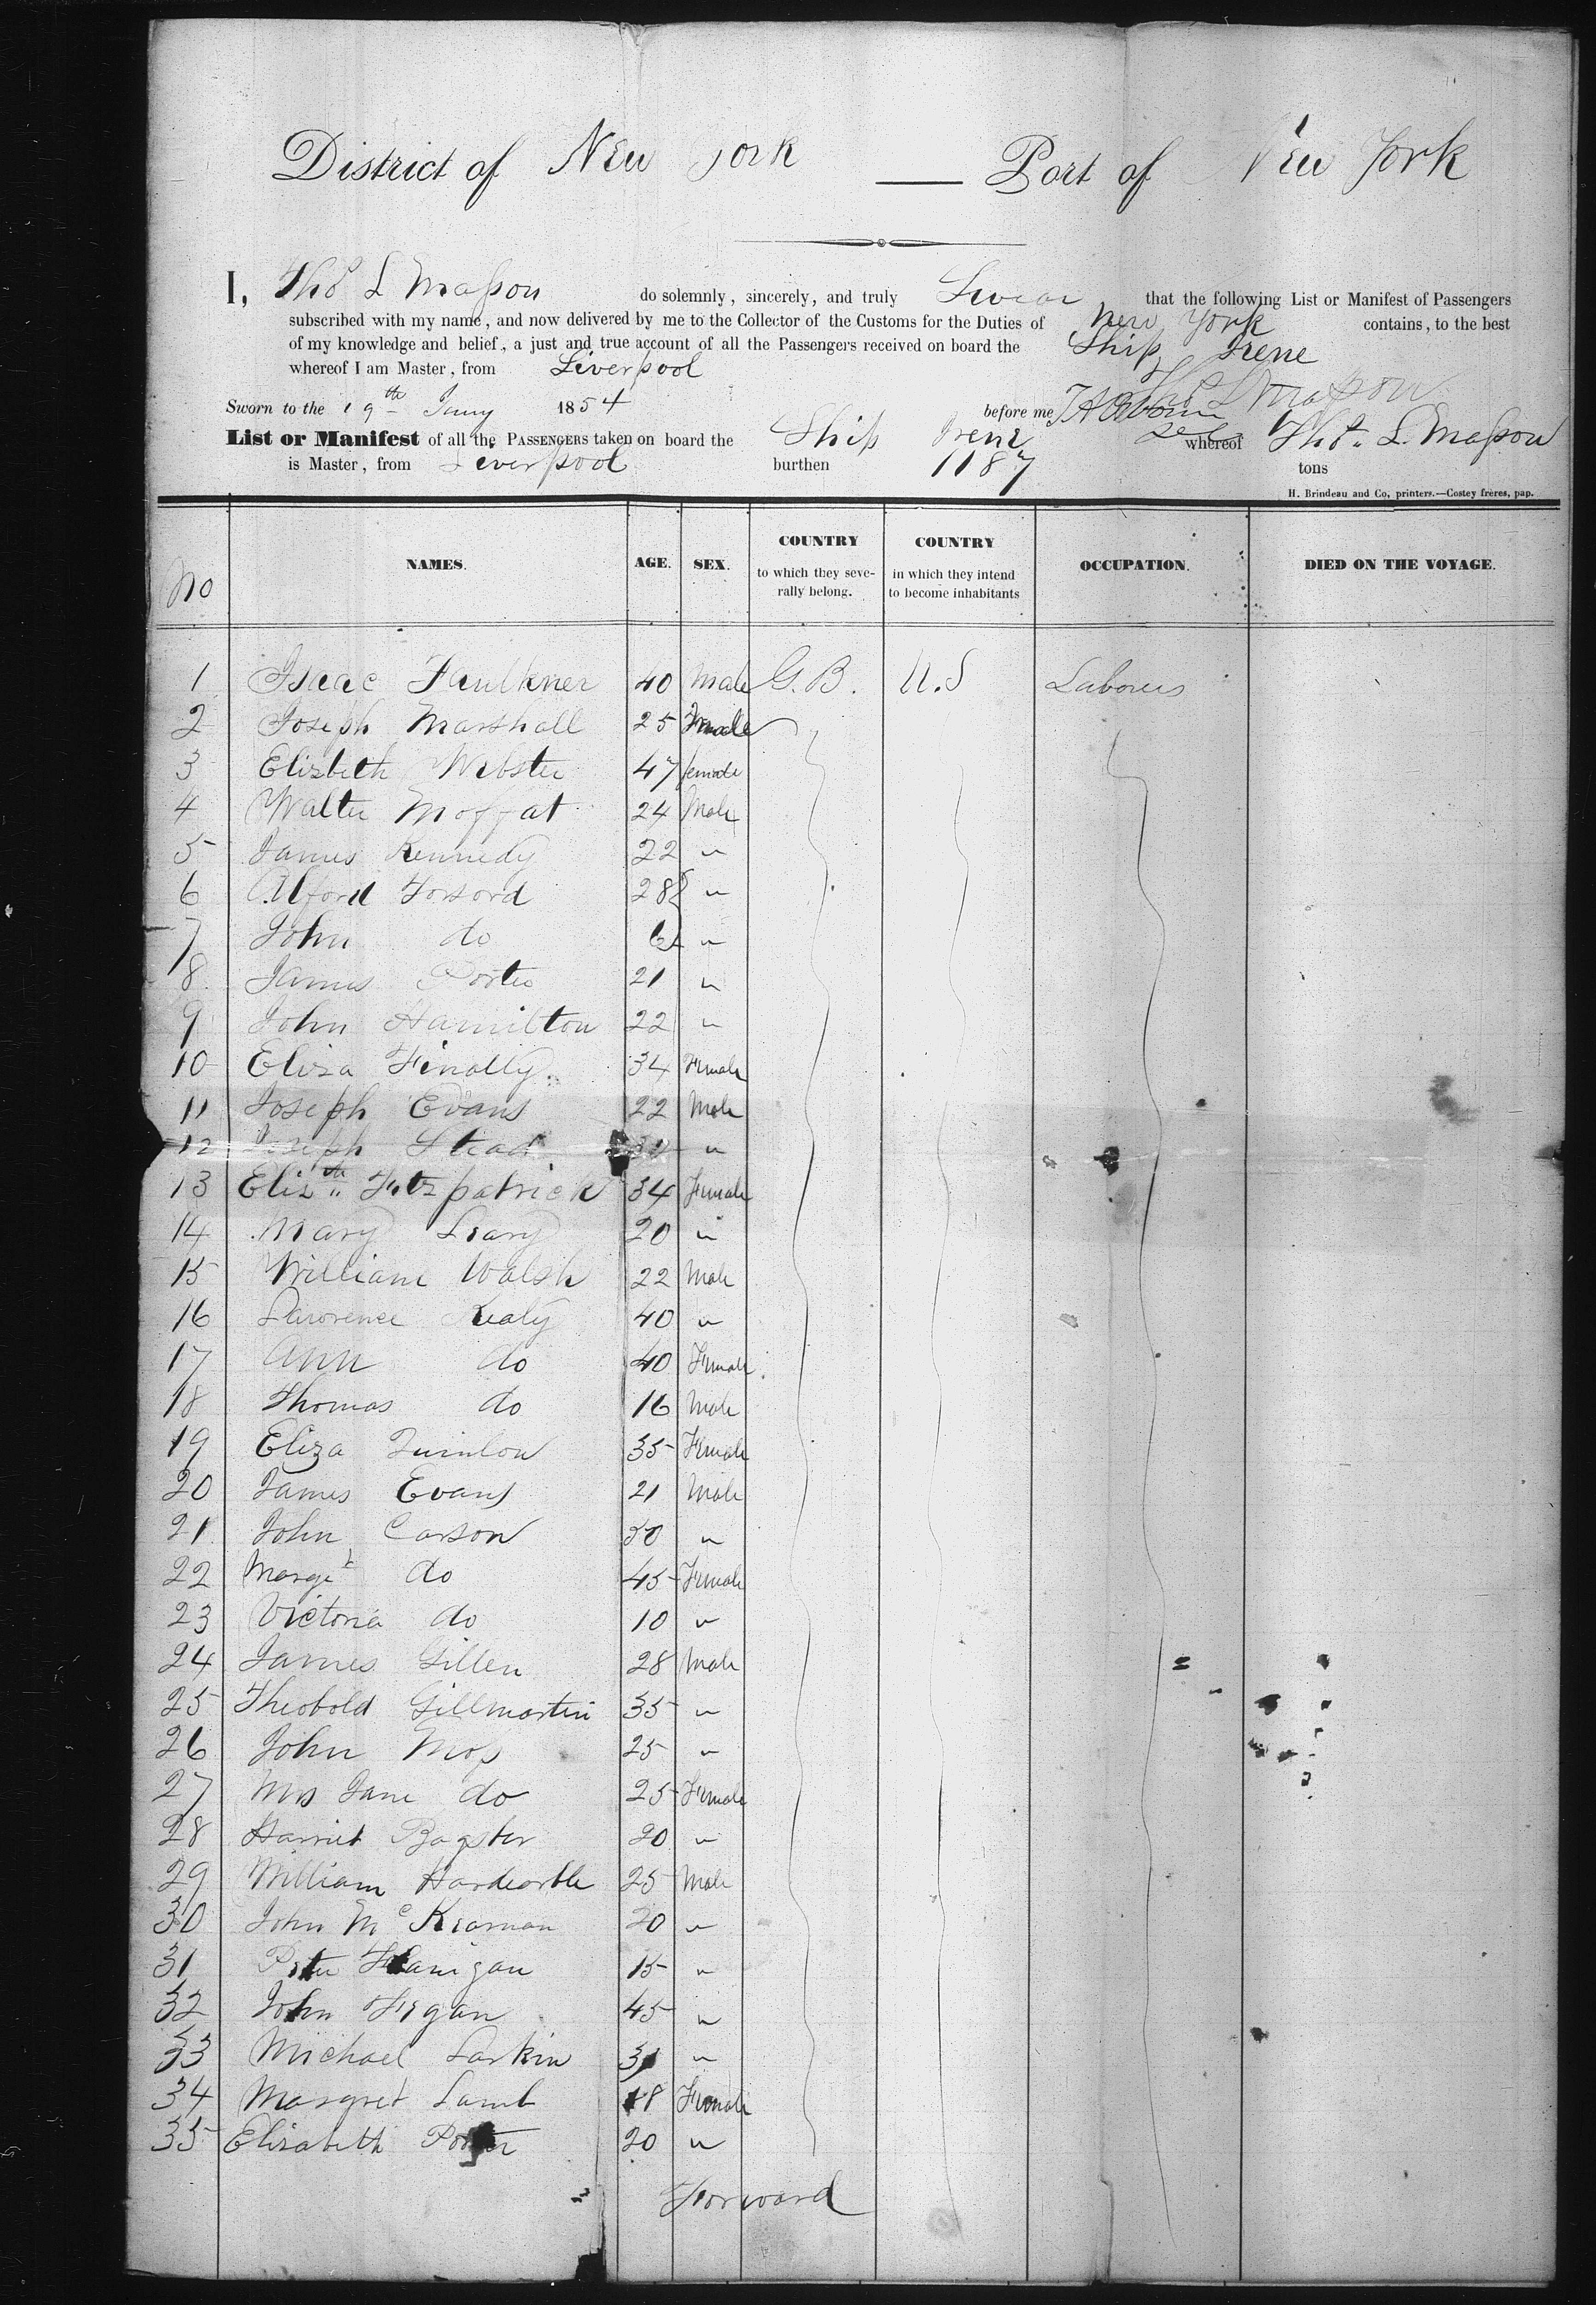 District of New York — Port of New York
I, Thos L Masson do solemnly, sincerely, and truly Swear that the following List or Manifest of Passengers
subscribed with my name, and now delivered by me to the Collector of the Customs for the Duties of New York contains, to the best
of my knowledge and belief, a just and true account of all the Passengers received on board the Ship Irene
whereof I am Master, from Liverpool
Thos L Masson
Sworn to the 19th Jany 1854 before me
List or Manifest of all the PASSENGERS taken on board the Ship Irene whereof Thos. L. Masson
is Master, from Liverpool burthen 1187 tons
H. Brindeau and Co, printers.—Costey frères, pap.
No NAMES. AGE. SEX. COUNTRY to which they severally belong. COUNTRY in which they intend to become inhabitants OCCUPATION. DIED ON THE VOYAGE.
1 Isaac Faulkner 40 Male G.B. U.S Laborers
2 Joseph Marshall 25 Male
3 Elizbeth Webster 47 female
4 Walter Moffat 24 Male
5 James Kennedy 22 "
6 Alford Forsord 28 "
7 John do 6 "
8 James Porter 21 "
9 John Hamilton 22 "
10 Eliza Finally 34 Female
11 Joseph Evans 22 Male
12 Joseph Stead "
13 Elizth Fitzpatrick 34 Female
14 Mary Leary 20 "
15 William Walsh 22 Male
16 Lawrence Kealy 40 "
17 Ann do 40 Female
18 Thomas do 16 Male
19 Eliza Quinlon 35 Female
20 James Evans 21 Male
21 John Carson 50 "
22 Marget do 45 Female
23 Victoria do 10 "
24 James Gillen 28 Male
25 Theobold Gillmartin 35 "
26 John Moss 25 "
27 Mrs Jane do 25 Female
28 Harriet Bagster 20 "
29 William Hardcastle 25 Male
30 John McKiarnan 20 "
31 Peter Flanigan 15 "
32 John Fegan 45 "
33 Michael Larkin 31 "
34 Margret Lamb 18 Female
35 Elizabeth Porter 20 "
Forward